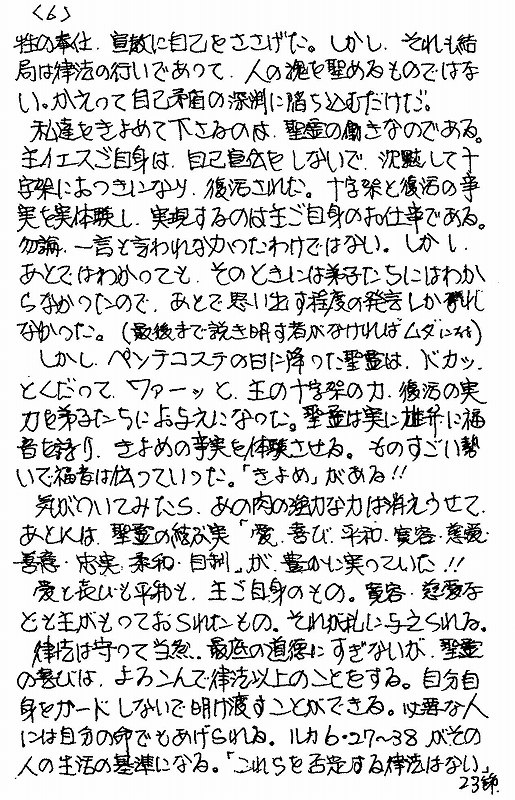 〈6〉
牲の奉仕、宣教に自己をささげた。しかし、それも結
局は律法の行いであって、人の魂を聖めるものではな
い。かえって自己矛盾の深渕に陥ち込むだけだ。
私達をきよめて下さるのは、聖霊の働きなのである。
主イエスご自身は、自己宣伝をしないで、沈黙して十
字架におつきになり、復活された。十字架と復活の事
実を実体験し、実現するのは主ご自身のお仕事である。
勿論、一言と言われなかったわけではない。しかし、
あとではわかっても、そのときには弟子たちにはわか
らなかったので、あとで思い出す程度の発言しかされ
なかった。(最後まで説き明す者がなければムダになる)
しかし、ペンテコステの日に降った聖霊は、ドカッ、
とくだって、ワァーッと、主の十字架の力、復活の実
力を弟子たちにお与えになった。聖霊は実に雄弁に福
音を語り、きよめの事実を体験させる。ものすごい勢
いで福音は伝っていった。「きよめ」がある!!
気がついてみたら、あの肉の強力な力は消えうせて、
あとには、聖霊の結ぶ実「愛、喜び、平和、寛容・慈愛・
善意・忠実・柔和・自制」が、豊かに実っていた!!
愛も喜びも平和も、主ご自身のもの。寛容・慈愛な
ども主がもっておられたもの。それが私に与えられる。
律法は守って当然、最低の道徳にすぎないが、聖霊
の喜びは、よろこんで律法以上のことをする。自分自
身をガードしないで明け渡すことができる。必要な人
には自分の命でもあげられる。ルカ6・27〜38がその
人の生活の基準になる。「これらを否定する律法はない」
23節